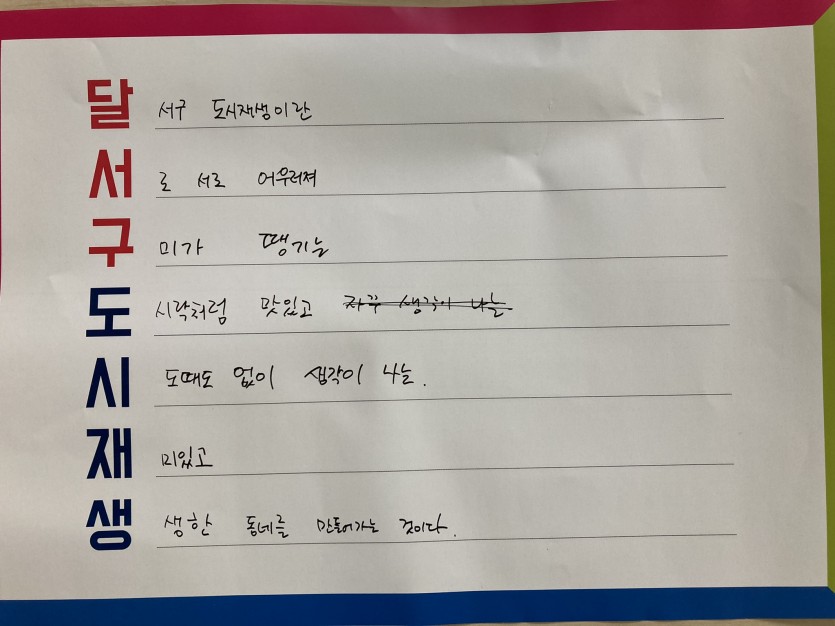 달 서구 도시재생이란
서 로 서로 어우러져
구 미가 땡기는
도 시락처럼 맛있고 자꾸 생각이 나는
시 도때도 없이 생각이 나는.
재 미있고
생 생한 동네를 만들어가는 것이다.